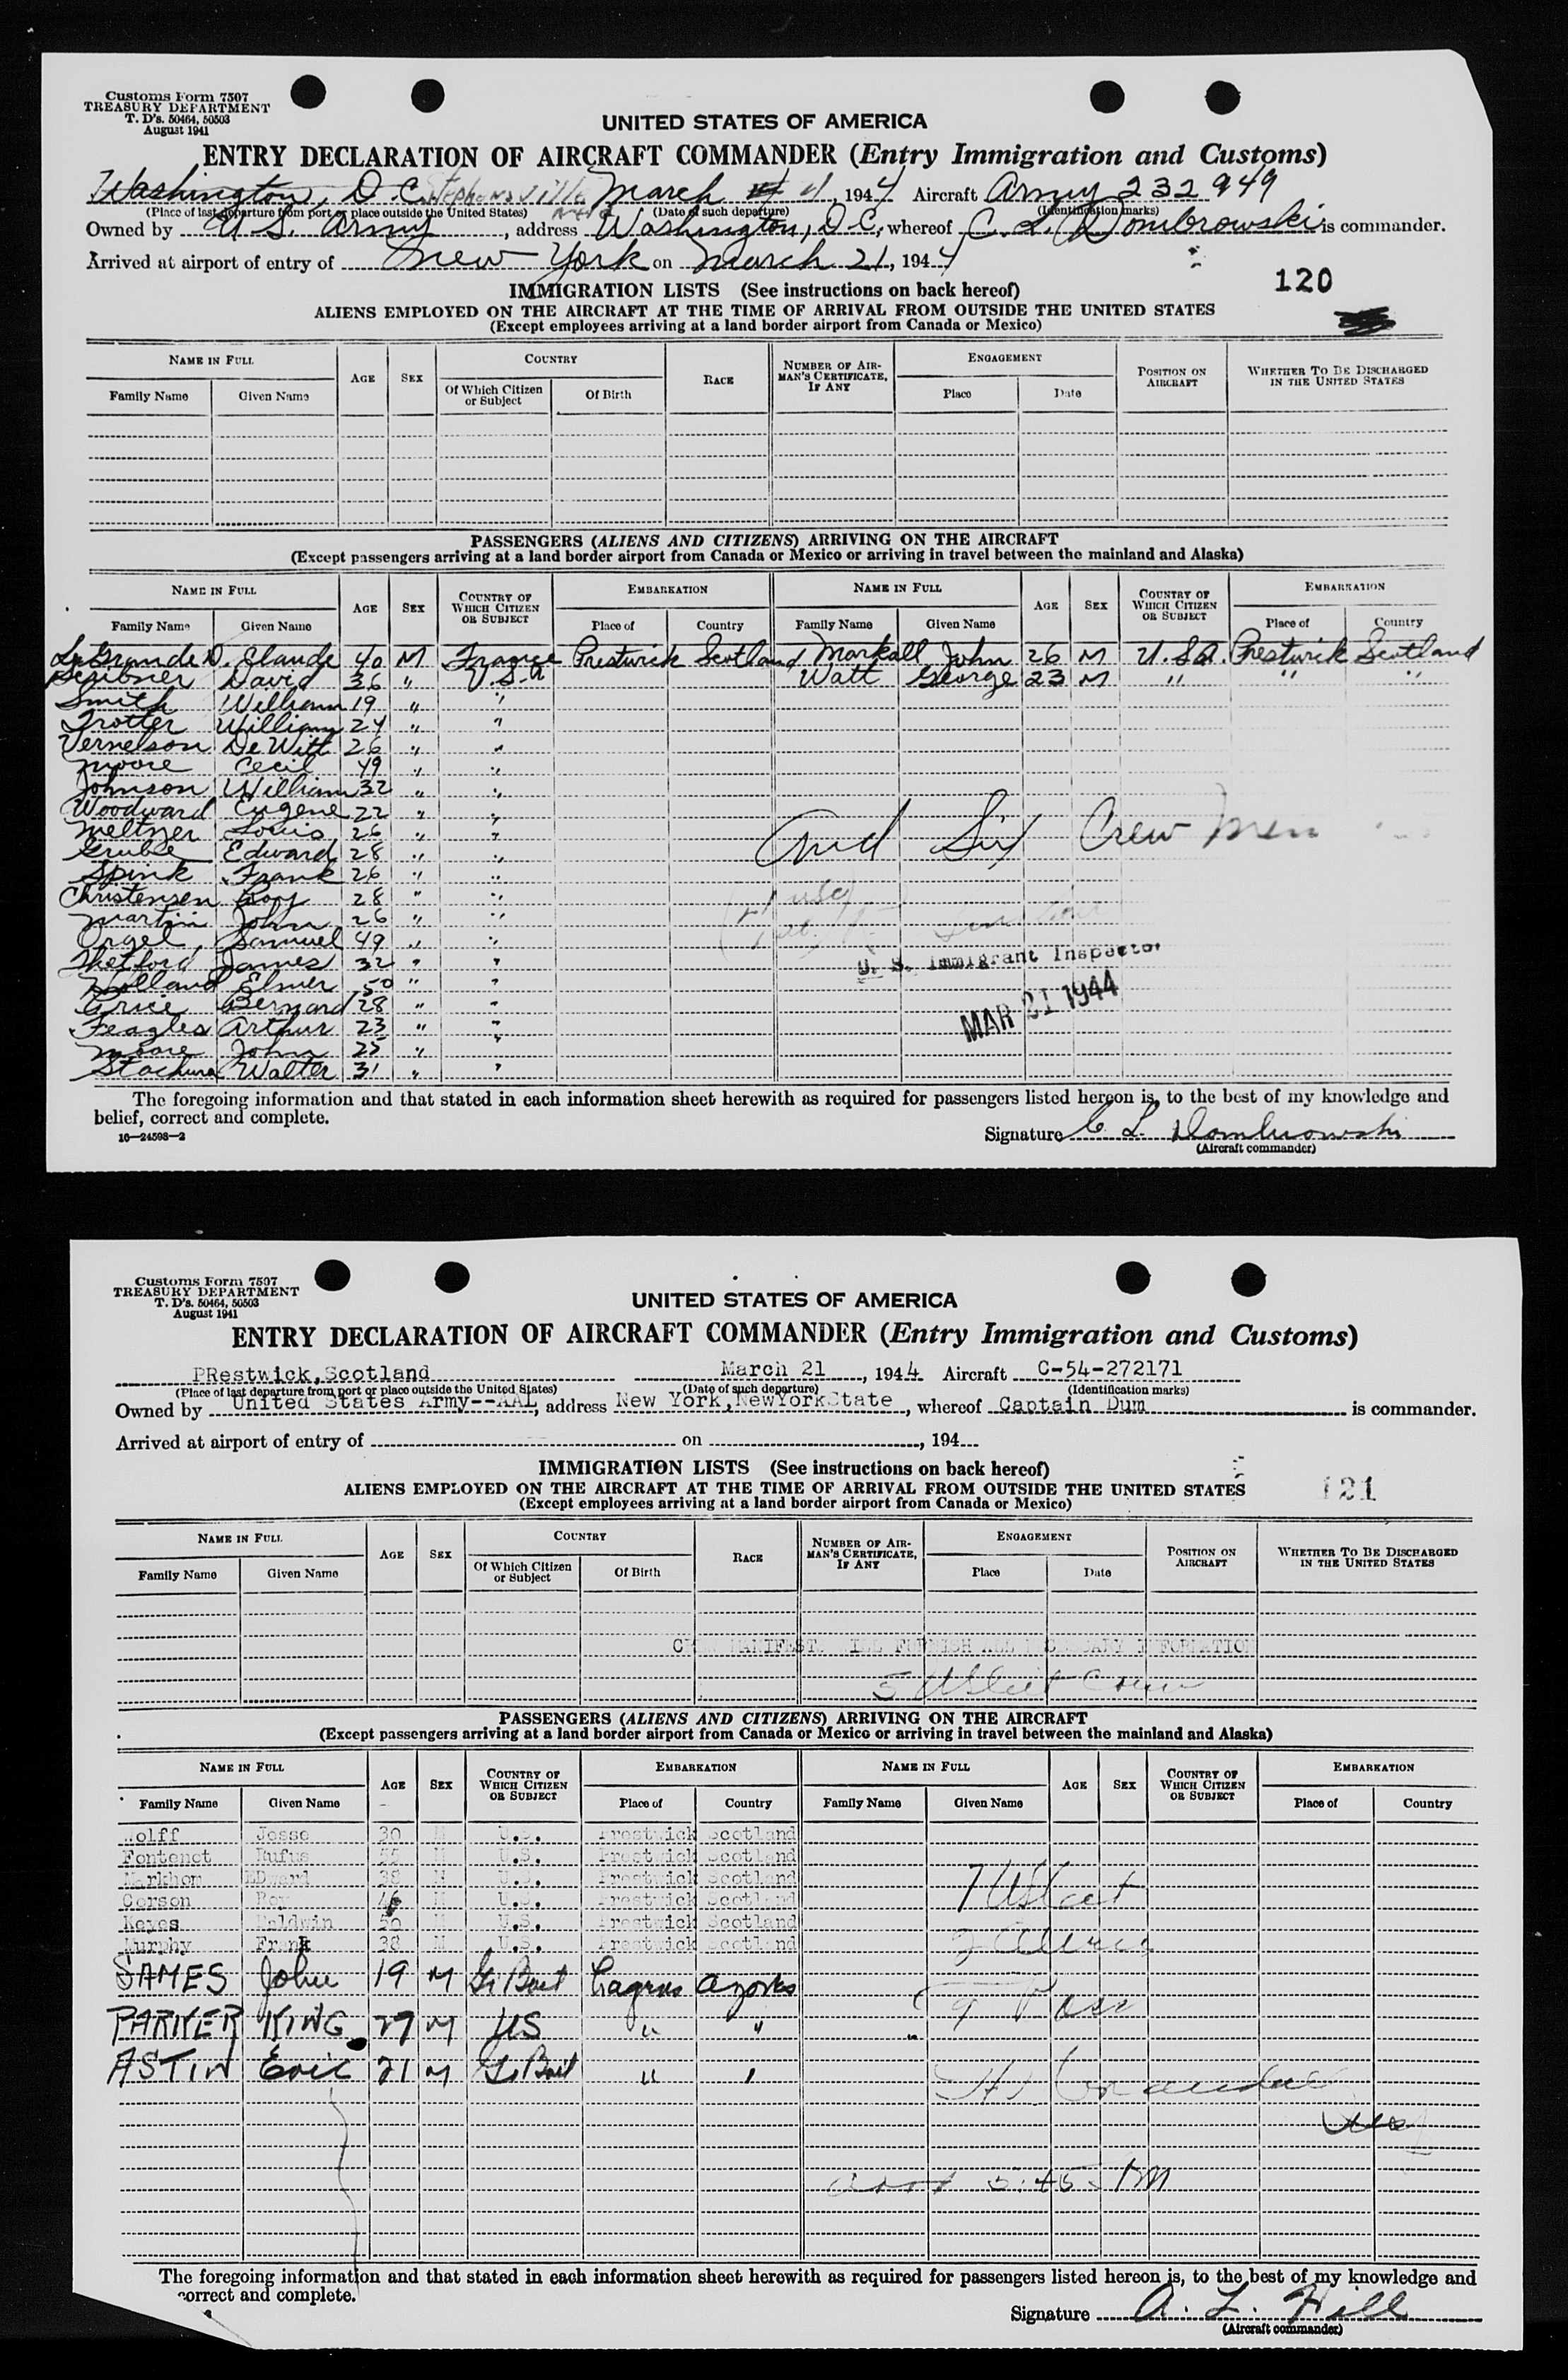 Customs Form 7507
TREASURY DEPARTMENT
T. D's. 50464, 50503
August 1941
UNITED STATES OF AMERICA
ENTRY DECLARATION OF AIRCRAFT COMMANDER (Entry Immigration and Customs)
Washington, D.C. Stephensville March 21, 1944 Aircraft Army 232949
(Place of last departure from port or place outside the United States) (Date of such departure) (Identification marks)
Owned by U.S. Army, address Washington, D.C., whereof C. L. Dombrowski is commander.
Arrived at airport of entry of New York on March 21, 1944
120
IMMIGRATION LISTS (See instructions on back hereof)
ALIENS EMPLOYED ON THE AIRCRAFT AT THE TIME OF ARRIVAL FROM OUTSIDE THE UNITED STATES
(Except employees arriving at a land border airport from Canada or Mexico)
NAME IN FULL AGE SEX COUNTRY RACE NUMBER OF AIRMAN'S CERTIFICATE, IF ANY ENGAGEMENT POSITION ON AIRCRAFT WHETHER TO BE DISCHARGED IN THE UNITED STATES
Family Name Given Name Of Which Citizen or Subject Of Birth Place Date
PASSENGERS (ALIENS AND CITIZENS) ARRIVING ON THE AIRCRAFT
(Except passengers arriving at a land border airport from Canada or Mexico or arriving in travel between the mainland and Alaska)
NAME IN FULL AGE SEX COUNTRY OF WHICH CITIZEN OR SUBJECT EMBARKATION NAME IN FULL AGE SEX COUNTRY OF WHICH CITIZEN OR SUBJECT EMBARKATION
Family Name Given Name Place of Country Family Name Given Name Place of Country
LeGrande D. Claude 40 M France Prestwick Scotland Markall John 26 M U.S.A. Prestwick Scotland
Scribner David 36 " U.S.A Watt George 23 M " " "
Smith William 19 " "
Trotter William 24 " "
Vernelson DeWitt 26 " "
Moore Cecil 49 " "
Johnson William 32 " "
Woodward Eugene 22 " "
Meltzer Louis 26 " "
Gruble Edward 28 " "
And Six Crew Men
Spink Frank 26 " "
Christensen Roy 28 " "
Martin John 26 " "
Orgel Samuel 49 " "
Thetford James 32 " "
U. S. Immigrant Inspector
Holland Elmer 50 " "
Grice Bernard 28 " "
MAR 21 1944
Feagles Arthur 23 " "
Moore John 25 " "
Stachura Walter 31 " "
The foregoing information and that stated in each information sheet herewith as required for passengers listed hereon is, to the best of my knowledge and
belief, correct and complete.
16—24598-2
Signature C. L. Dombrowski
(Aircraft commander)
Customs Form 7507
TREASURY DEPARTMENT
T. D's. 50464, 50503
August 1941
UNITED STATES OF AMERICA
ENTRY DECLARATION OF AIRCRAFT COMMANDER (Entry Immigration and Customs)
PRestwick,Scotland March 21, 1944 Aircraft C-54-272171
(Place of last departure from port or place outside the United States) (Date of such departure) (Identification marks)
Owned by United States Army--AAL, address New York,NewYorkState, whereof Captain Dum is commander.
Arrived at airport of entry of on , 194
IMMIGRATION LISTS (See instructions on back hereof)
121
ALIENS EMPLOYED ON THE AIRCRAFT AT THE TIME OF ARRIVAL FROM OUTSIDE THE UNITED STATES
(Except employees arriving at a land border airport from Canada or Mexico)
NAME IN FULL AGE SEX COUNTRY RACE NUMBER OF AIRMAN'S CERTIFICATE, IF ANY ENGAGEMENT POSITION ON AIRCRAFT WHETHER TO BE DISCHARGED IN THE UNITED STATES
Family Name Given Name Of Which Citizen or Subject Of Birth Place Date
CREW MANIFEST WILL FURNISH ALL NECESSARY INFORMATION
5 UScit Crew
PASSENGERS (ALIENS AND CITIZENS) ARRIVING ON THE AIRCRAFT
(Except passengers arriving at a land border airport from Canada or Mexico or arriving in travel between the mainland and Alaska)
NAME IN FULL AGE SEX COUNTRY OF WHICH CITIZEN OR SUBJECT EMBARKATION NAME IN FULL AGE SEX COUNTRY OF WHICH CITIZEN OR SUBJECT EMBARKATION
Family Name Given Name Place of Country Family Name Given Name Place of Country
Wolff Jesse 30 M U.S. Prestwick Scotland
Fontenot Rufus 55 M U.S. Prestwick Scotland
Markhom EDward 38 M U.S. Prestwick Scotland
Corson Roy 46 M U.S. Prestwick Scotland 7 UScit
Keyes Baldwin 50 M U.S. Prestwick Scotland
Murphy Frank 38 M U.S. Prestwick Scotland 2 Aliens
SAMES John 19 M Gr Brit Lagens Azores
9 Pass
PARKER KING 29 M US " "
ASTIN Eric 21 M Gr Brit " "
arr 5:45 PM
The foregoing information and that stated in each information sheet herewith as required for passengers listed hereon is, to the best of my knowledge and
correct and complete.
Signature A. L. Hill
(Aircraft commander)